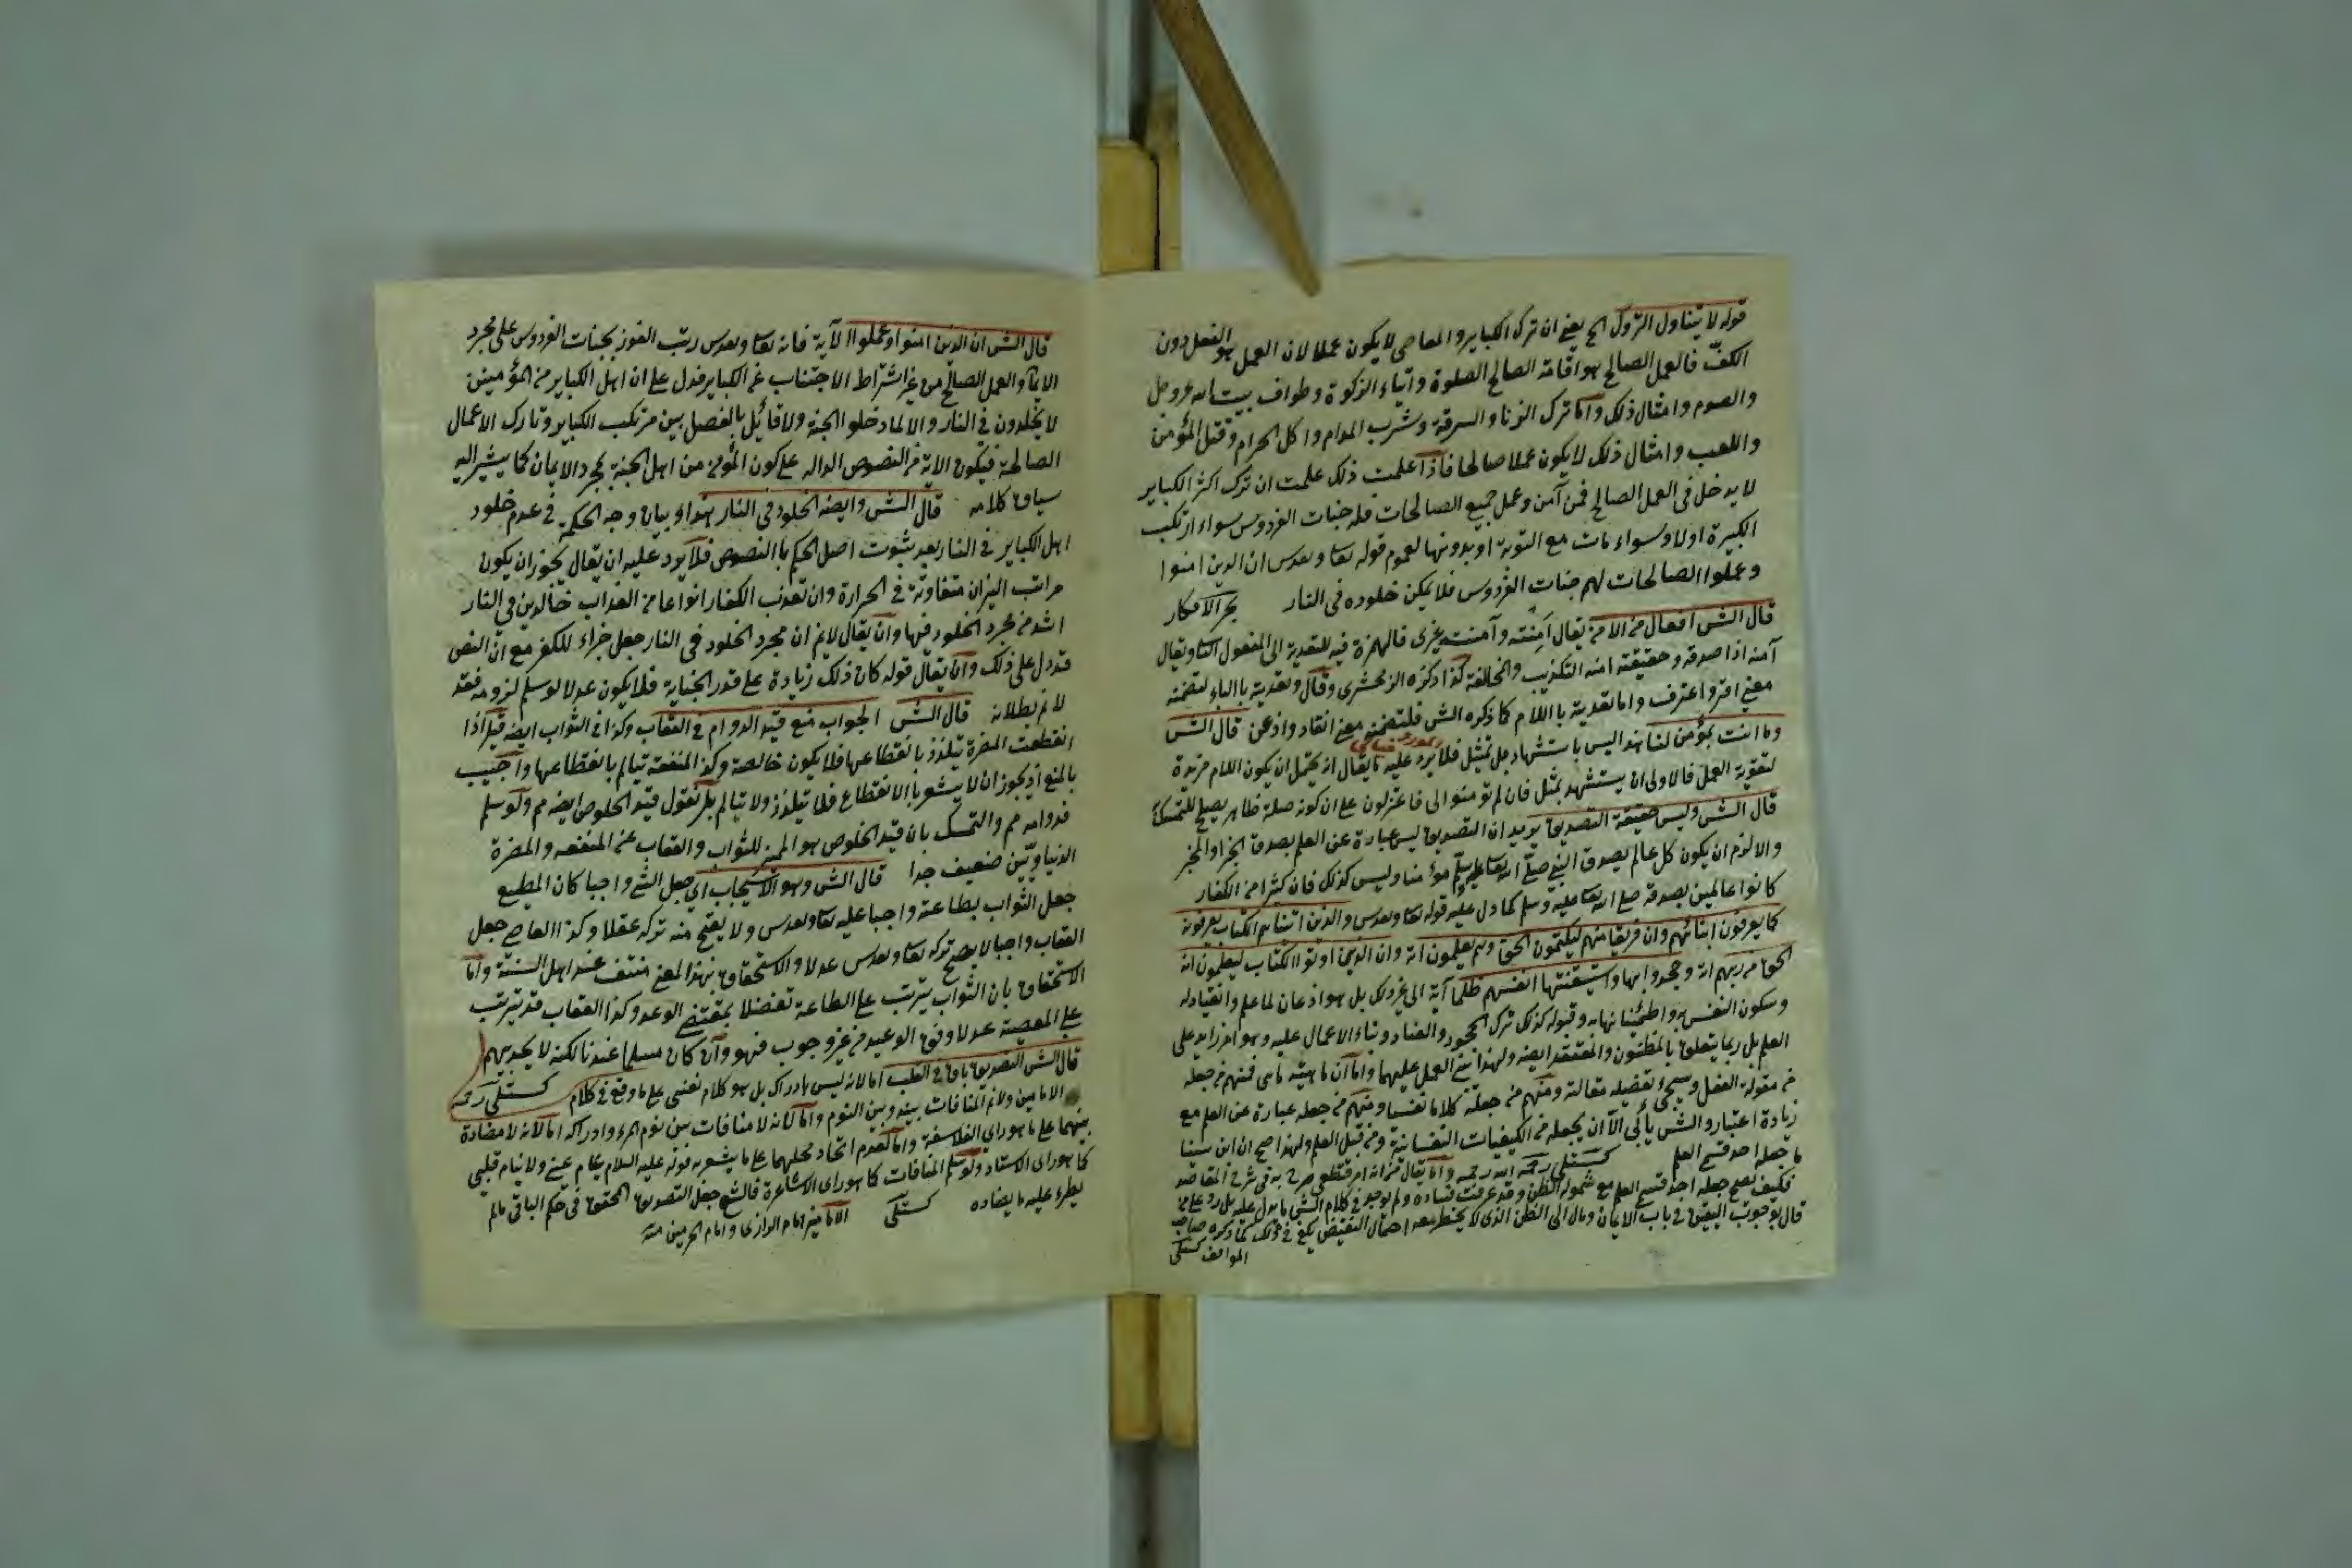 قوله لا يتناول التروك الخ يعني ان ترك الكباير والمعاصي لا يكون عملا لان العمل هو الفعل دون
الكفّ فالعمل الصالح هو اقامة الصالح الصلوة وايتاء الزكوة وطواف بيت الله عز وجل
والصوم وامثال ذلك واما ترك الزنا والسرقة وشرب المدام واكل الحرام وقتل المؤمن
واللعب وامثال ذلك لا يكون عملا صالحا فاذا علمت ذلك علمت ان ترك اكثر الكباير
لا يدخل في العمل الصالح فمن آمن وعمل جميع الصالحات فله جنات الفردوس سواء ارتكب
الكبيرة اولا وسواء مات مع التوبة او بدونها لعموم قوله تعا وتقدس ان الذين امنوا
وعملوا الصالحات لهم جنات الفردوس فلا يمكن خلوده في النار بحر الافكار
قال الش افعال من الامن يقال اَمِنْته وآمنت غيري فالهمزة فيه للتعدية الى المفعول الثا ويقال
آمنه اذا صدقه وحقيقته امنه التكذيب والمخالفة كذا ذكره الزمخشري وقال وتعديته بالباء لتضمنه
معنى اقر واعترف واما تعديته باللام كما ذكره الش فلتضمنه معنى انقاد واذعن قال الش
وما انت بمؤمن لنا هذا ليس باستشهاد بل تمثيل فلا يرد عليه ما يقال انه يحتمل ان يكون اللام مزيدة
لتقوية العمل فالاولى ان يستشهد بمثل فان لم تؤمنوا لى فاعتزلون على ان كونه صلة ظاهر يصلح للتمسك
قال الش وليس حقيقة التصديق يريد ان التصديق ليس عبارة عن العلم بصدق الخبر او المخبر
والا لزم ان يكون كل عالم بصدق النبي صلى الله تعا عليه وسلم مؤمنا وليس كذلك فان كثيرا من الكفار
كانوا عالمين بصدقه صلى الله تعا عليه وسلم كما دل عليه قوله تعا وتقدس والذين اتيناهم الكتاب يعرفونه
كما يعرفون ابنائهم وان فريقا منهم ليكتمون الحق وهم يعلمون انه وان الذين اوتوا الكتاب ليعلمون انه
الحق من ربهم انه وجحدوا بها واستيقنتها انفسهم ظلما آية الى غير ذلك بل هو اذعان لما علم وانقياد له
وسكون النفس به واطمئنانها به وقبوله كذلك ترك الجحود والعناد وبناء الاعمال عليه وهو امر زايد على
العلم بل ربما يتعلق بالمظنون والمعتقد ايضه ولهذا بنى العمل عليهما واما ان ماهيته ماهي فمنهم من جعله
من مقولة الفعل وسيجئ تفصيله مقالة ومنهم من جعله كلاما نفسيا ومنهم من جعله عبارة عن العلم مع
زيادة اعتبار والش يأبى الا ان يجعله من الكيفيات النفسانية ومن قبيل العلم ولهذا صح ان ابن سينا
ما جعله احد قسمي العلم كستلى رحمة الله رحمه واما يقال من انه امر قطعي صرح به في شرح المقاصد
فكيف يصح جعله احد قسمي العلم مع شموله الظن وقد عرفت فساده ولم يوجد في كلام الش ما يدل عليه بل رد على من
قال بوجوب اليقين في باب الايمان ومال الى الظن الذي لا يخطر معه احتمال النقيض يكفي في ذلك كما ذكره صاحب
المواقف كستلى
قال الش ان الذين امنوا وعملوا الآية فانه تعا وتقدس رتب الفوز بجنات الفردوس على مجرد
الايمان والعمل الصالح من غير اشتراط الاجتناب عن الكباير فدل على ان اهل الكباير من المؤمنين
لا يخلدون في النار والا لما دخلوا الجنة ولا قائل بالفصل بين مرتكب الكباير وتارك الاعمال
الصالحة فيكون الاية من النصوص الداله على كون المؤمن من اهل الجنة بمجرد الايمان كما يشير اليه
سياق كلامه قال الش وايضه الخلود في النار هذا بيان وجه الحكمة في عدم خلود
اهل الكباير في النار بعد ثبوت اصل الحكم بالنصوص فلا يرد عليه ان يقال يجوز ان يكون
مراتب النيران متفاوتة في الحرارة وان تعذب الكفار انواعا من العذاب خالدين في النار
اشد من مجرد الخلود فيها وان يقال لا نم ان مجرد الخلود في النار جعل جزاء للكفر مع ان النص
قد دل على ذلك وان يقال قوله كان ذلك زيادة على قدر الجناية فلا يكون عدلا لو سلم لزومه فقد
لا نم بطلانه قال الش الجواب منع قيد الدوام في العقاب وكذا في الثواب ايضه قيل اذا
انقطعت المضرة تيلذذ بانقطاعها فلا يكون خالصة وكذا المنفعة تيالم بانقطاعها واجيب
بالمنع اذ يجوز ان لا يشعر بالانقطاع فلا تيلذذ ولا تيالم بل نقول قيد الخلوص ايضه مم ولو سلم
فدوامه مم والتمسك بان قيد الخلوص هو المميز للثواب والعقاب عن المنفعه والمضرة
الدنياويين ضعيف جدا قال الش وهو الاستيجاب اى جعل الشئ واجبا كان المطيع
جعل الثواب بطاعته واجبا عليه تعا وتقدس ولا يقبح منه تركه عقلا وكذا العاصي جعل
العقاب واجبا لا يصح تركه تعا وتقدس عدلا والاستحقاق بهذا المعنى منتف عند اهل السنة واما
الاستحقاق بان الثواب يترتب على الطاعة تفضلا بمقتضى الوعد وكذا العقاب قد يترتب
على المعصية عدلا وفق الوعيد من غير وجوب فهو وان كان مسلما عندنا لكنه لا يجديهم
قال الش التصديق باق في القلب اما لانه ليس بادراك بل هو كلام نفسي على ما وقع في كلام كستلى رحمه
الامامين ولا نم المنافات بينه وبين النوم واما لانه لا منافات بين نوم المرء وادراكه اما لانه لا مضادة
بينهما على ما هو راى الفلاسفة واما لعدم اتحاد محلهما على ما يشعر به قوله عليه السلام ينام عيني ولا ينام قلبي
كما هو راى الاستاذ ولو سلم المنافات كما هو راى الاشاعرة فالشرع جعل التصديق المحقق في حكم الباقي مالم
يطرء عليه ما يضاده كستلى الامامين امام الرازى وامام الحرمين منه